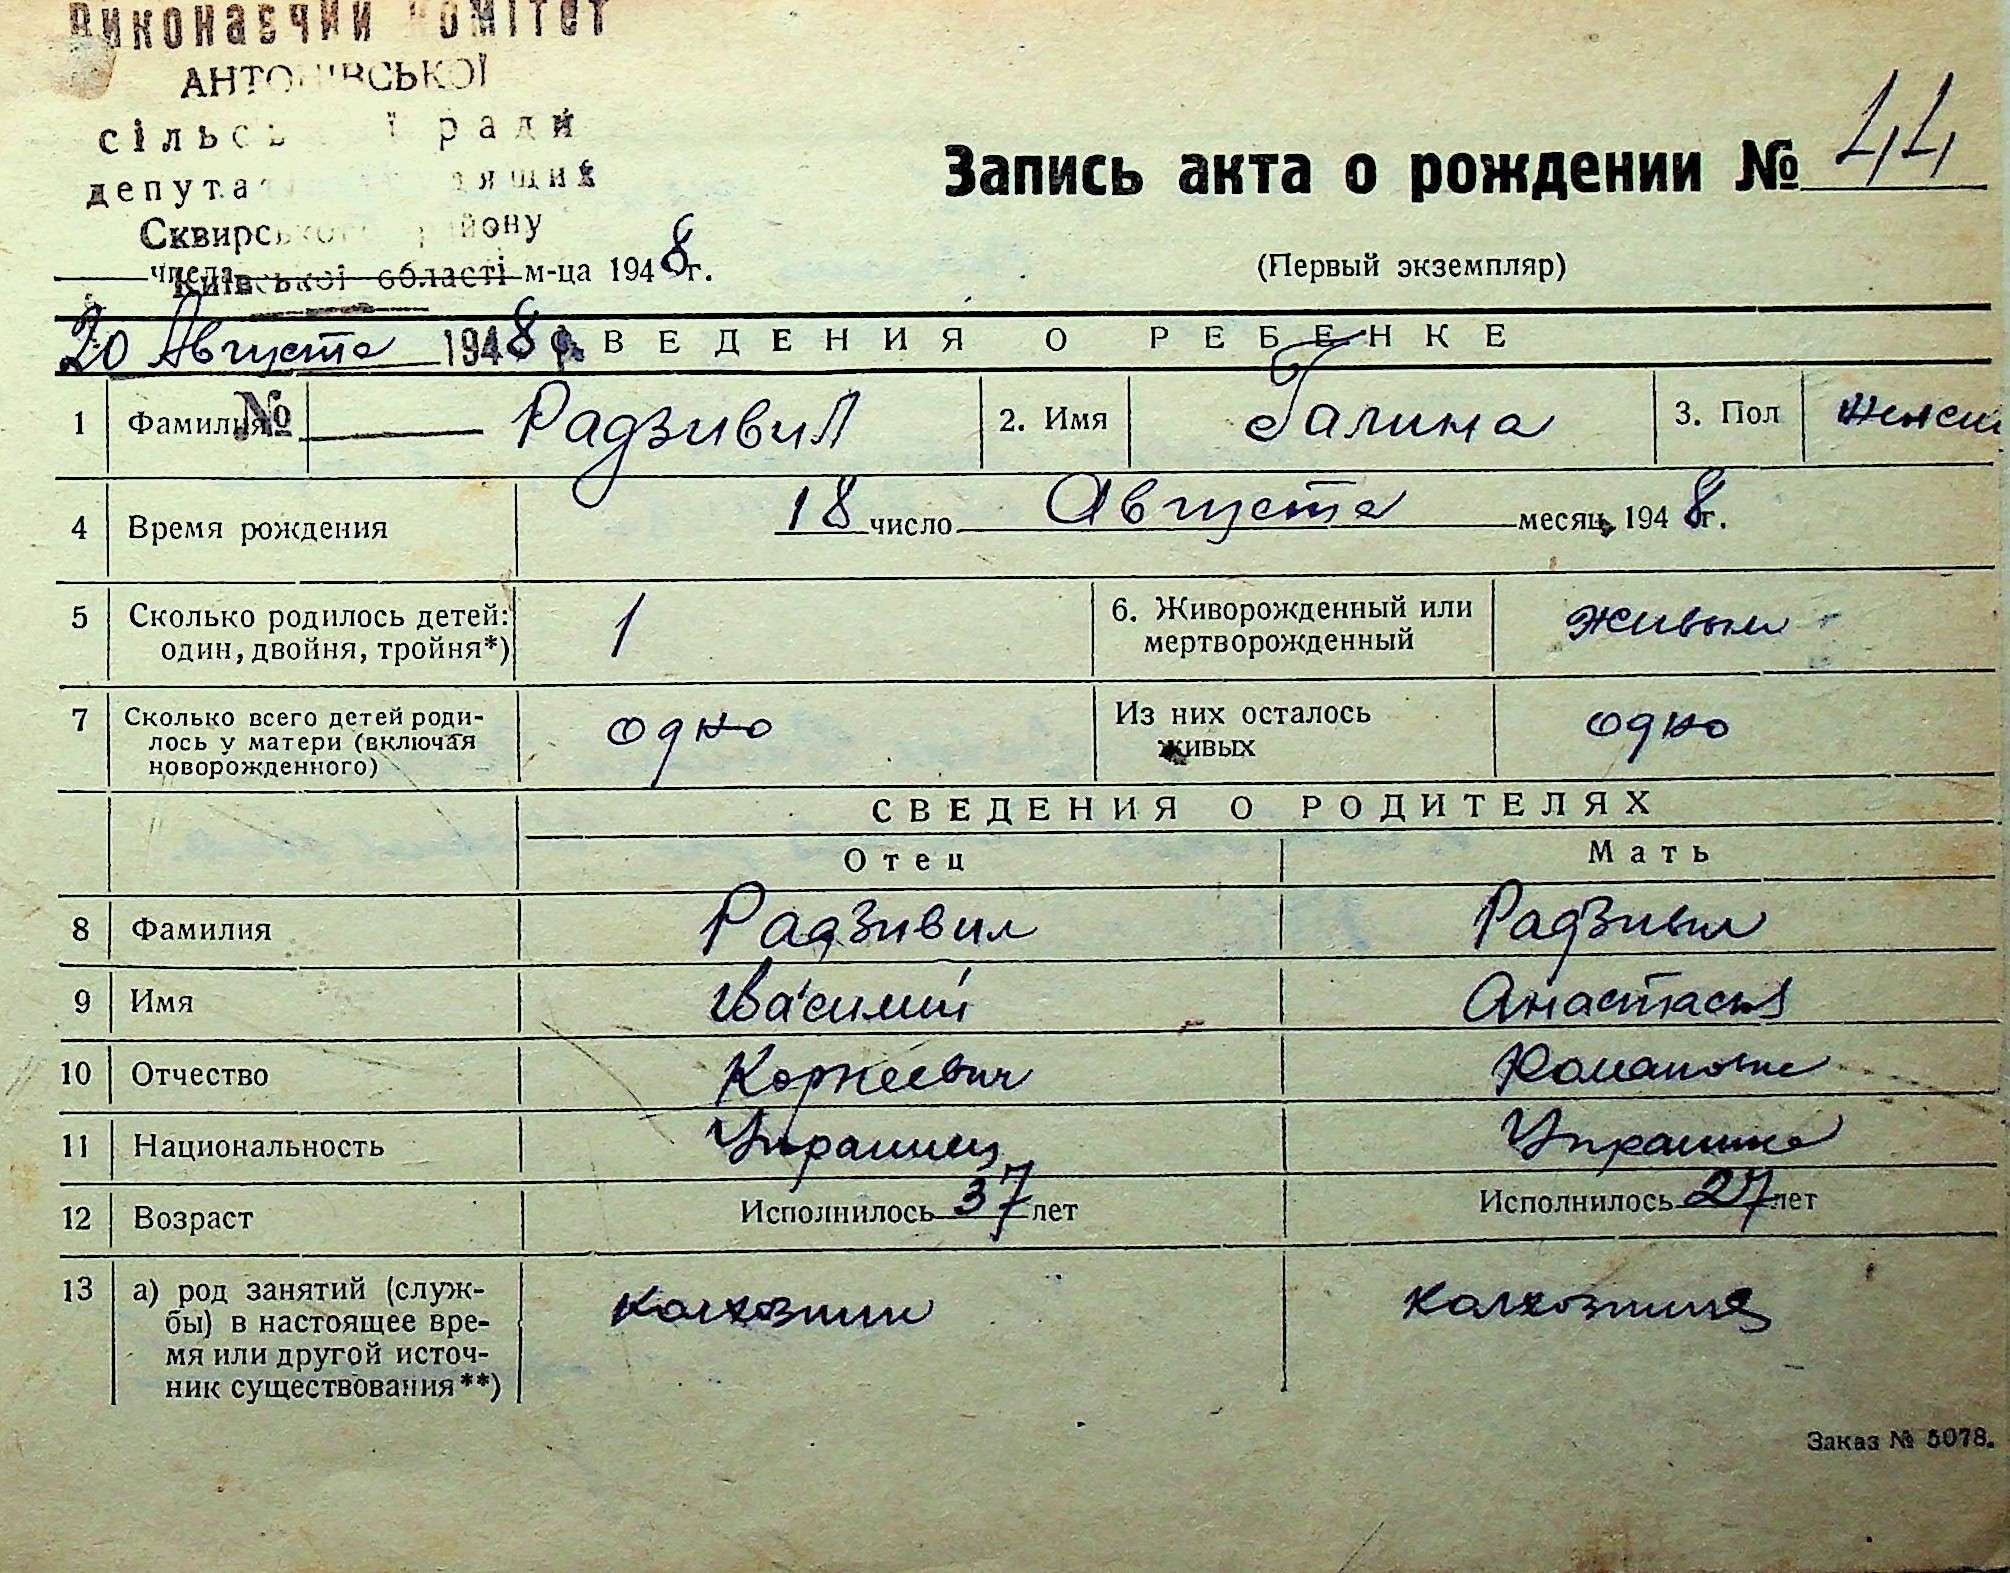 Виконавчий комітет
АНТОНІВСЬКОЇ
сільської ради
депутатів трудящих
Сквирського району
Київської області
числа м-ца 1948 г.
Запись акта о рождении № 44
(Первый экземпляр)
20 Августа 1948 р.
СВЕДЕНИЯ О РЕБЕНКЕ
№
1 Фамилия Радзивил 2. Имя Галина 3. Пол женск
4 Время рождения 18 число Августа месяц 1948 г.
5 Сколько родилось детей: 1 6. Живорожденный или живым
один, двойня, тройня*) мертворожденный
7 Сколько всего детей роди- одно Из них осталось одно
лось у матери (включая живых
новорожденного)
СВЕДЕНИЯ О РОДИТЕЛЯХ
Отец Мать
8 Фамилия Радзивил Радзивил
9 Имя Василий Анастасия
10 Отчество Корнеевич Романовна
11 Национальность Украинец Украинка
12 Возраст Исполнилось 37 лет Исполнилось 27 лет
13 а) род занятий (служ- колхозник колхозница
бы) в настоящее вре-
мя или другой источ-
ник существования**)
Заказ № 5078.